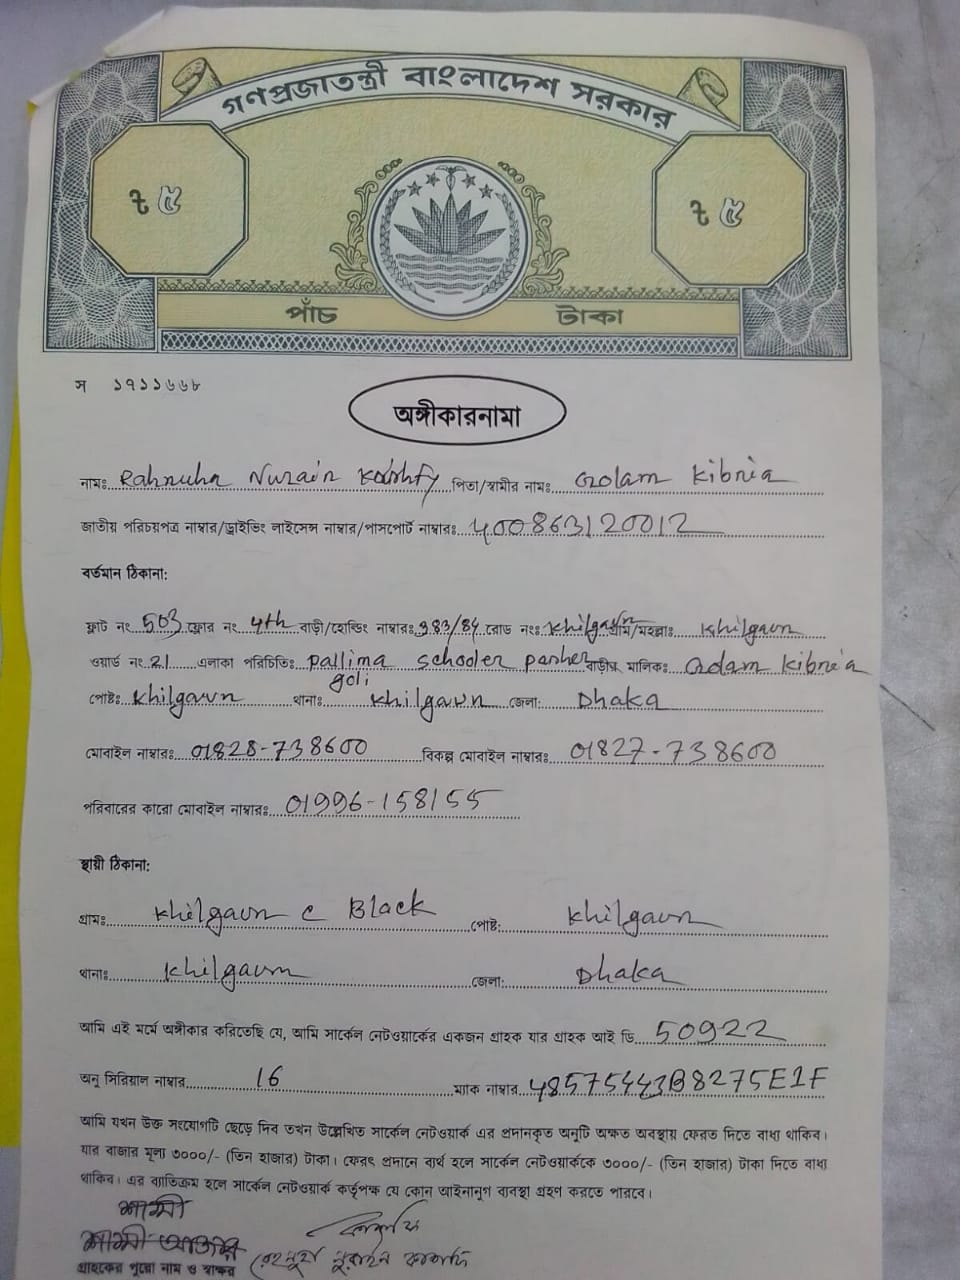 গণপ্রজাতন্ত্রী বাংলাদেশ সরকার
৳ ৫ ৳ ৫
পাঁচ টাকা
স ১৭১১৬৬৮
অঙ্গীকারনামা
নামঃ Rahnuha Nurain Kashfy পিতা/স্বামীর নামঃ Golam Kibria
জাতীয় পরিচয়পত্র নাম্বার/ড্রাইভিং লাইসেন্স নাম্বার/পাসপোর্ট নাম্বারঃ 400863120012
বর্তমান ঠিকানা:
ফ্লাট নং 503 ফ্লোর নং 4th বাড়ী/হোল্ডিং নাম্বারঃ 983/84 রোড নংঃ Khilgaun গ্রাম/মহল্লাঃ Khilgaun
ওয়ার্ড নং 21 এলাকা পরিচিতিঃ Pallima schooler pasher goli বাড়ীর মালিকঃ Golam Kibria
পোষ্টঃ Khilgaun থানাঃ Khilgaun জেলা: Dhaka
মোবাইল নাম্বারঃ 01828-738600 বিকল্প মোবাইল নাম্বারঃ 01827-738600
পরিবারের কারো মোবাইল নাম্বারঃ 01996-158155
স্থায়ী ঠিকানা:
গ্রামঃ Khilgaun C Black পোষ্ট: Khilgaun
থানাঃ Khilgaun জেলা: Dhaka
আমি এই মর্মে অঙ্গীকার করিতেছি যে, আমি সার্কেল নেটওয়ার্কের একজন গ্রাহক যার গ্রাহক আই ডি 50922
অনু সিরিয়াল নাম্বার 16 ম্যাক নাম্বার 48575443B8275E1F
আমি যখন উক্ত সংযোগটি ছেড়ে দিব তখন উল্লেখিত সার্কেল নেটওয়ার্ক এর প্রদানকৃত অনুটি অক্ষত অবস্থায় ফেরত দিতে বাধ্য থাকিব।
যার বাজার মূল্য ৩০০০/- (তিন হাজার) টাকা। ফেরৎ প্রদানে ব্যর্থ হলে সার্কেল নেটওয়ার্ককে ৩০০০/- (তিন হাজার) টাকা দিতে বাধ্য
থাকিব। এর ব্যতিক্রম হলে সার্কেল নেটওয়ার্ক কর্তৃপক্ষ যে কোন আইনানুগ ব্যবস্থা গ্রহণ করতে পারবে।
গ্রাহকের পুরো নাম ও স্বাক্ষর